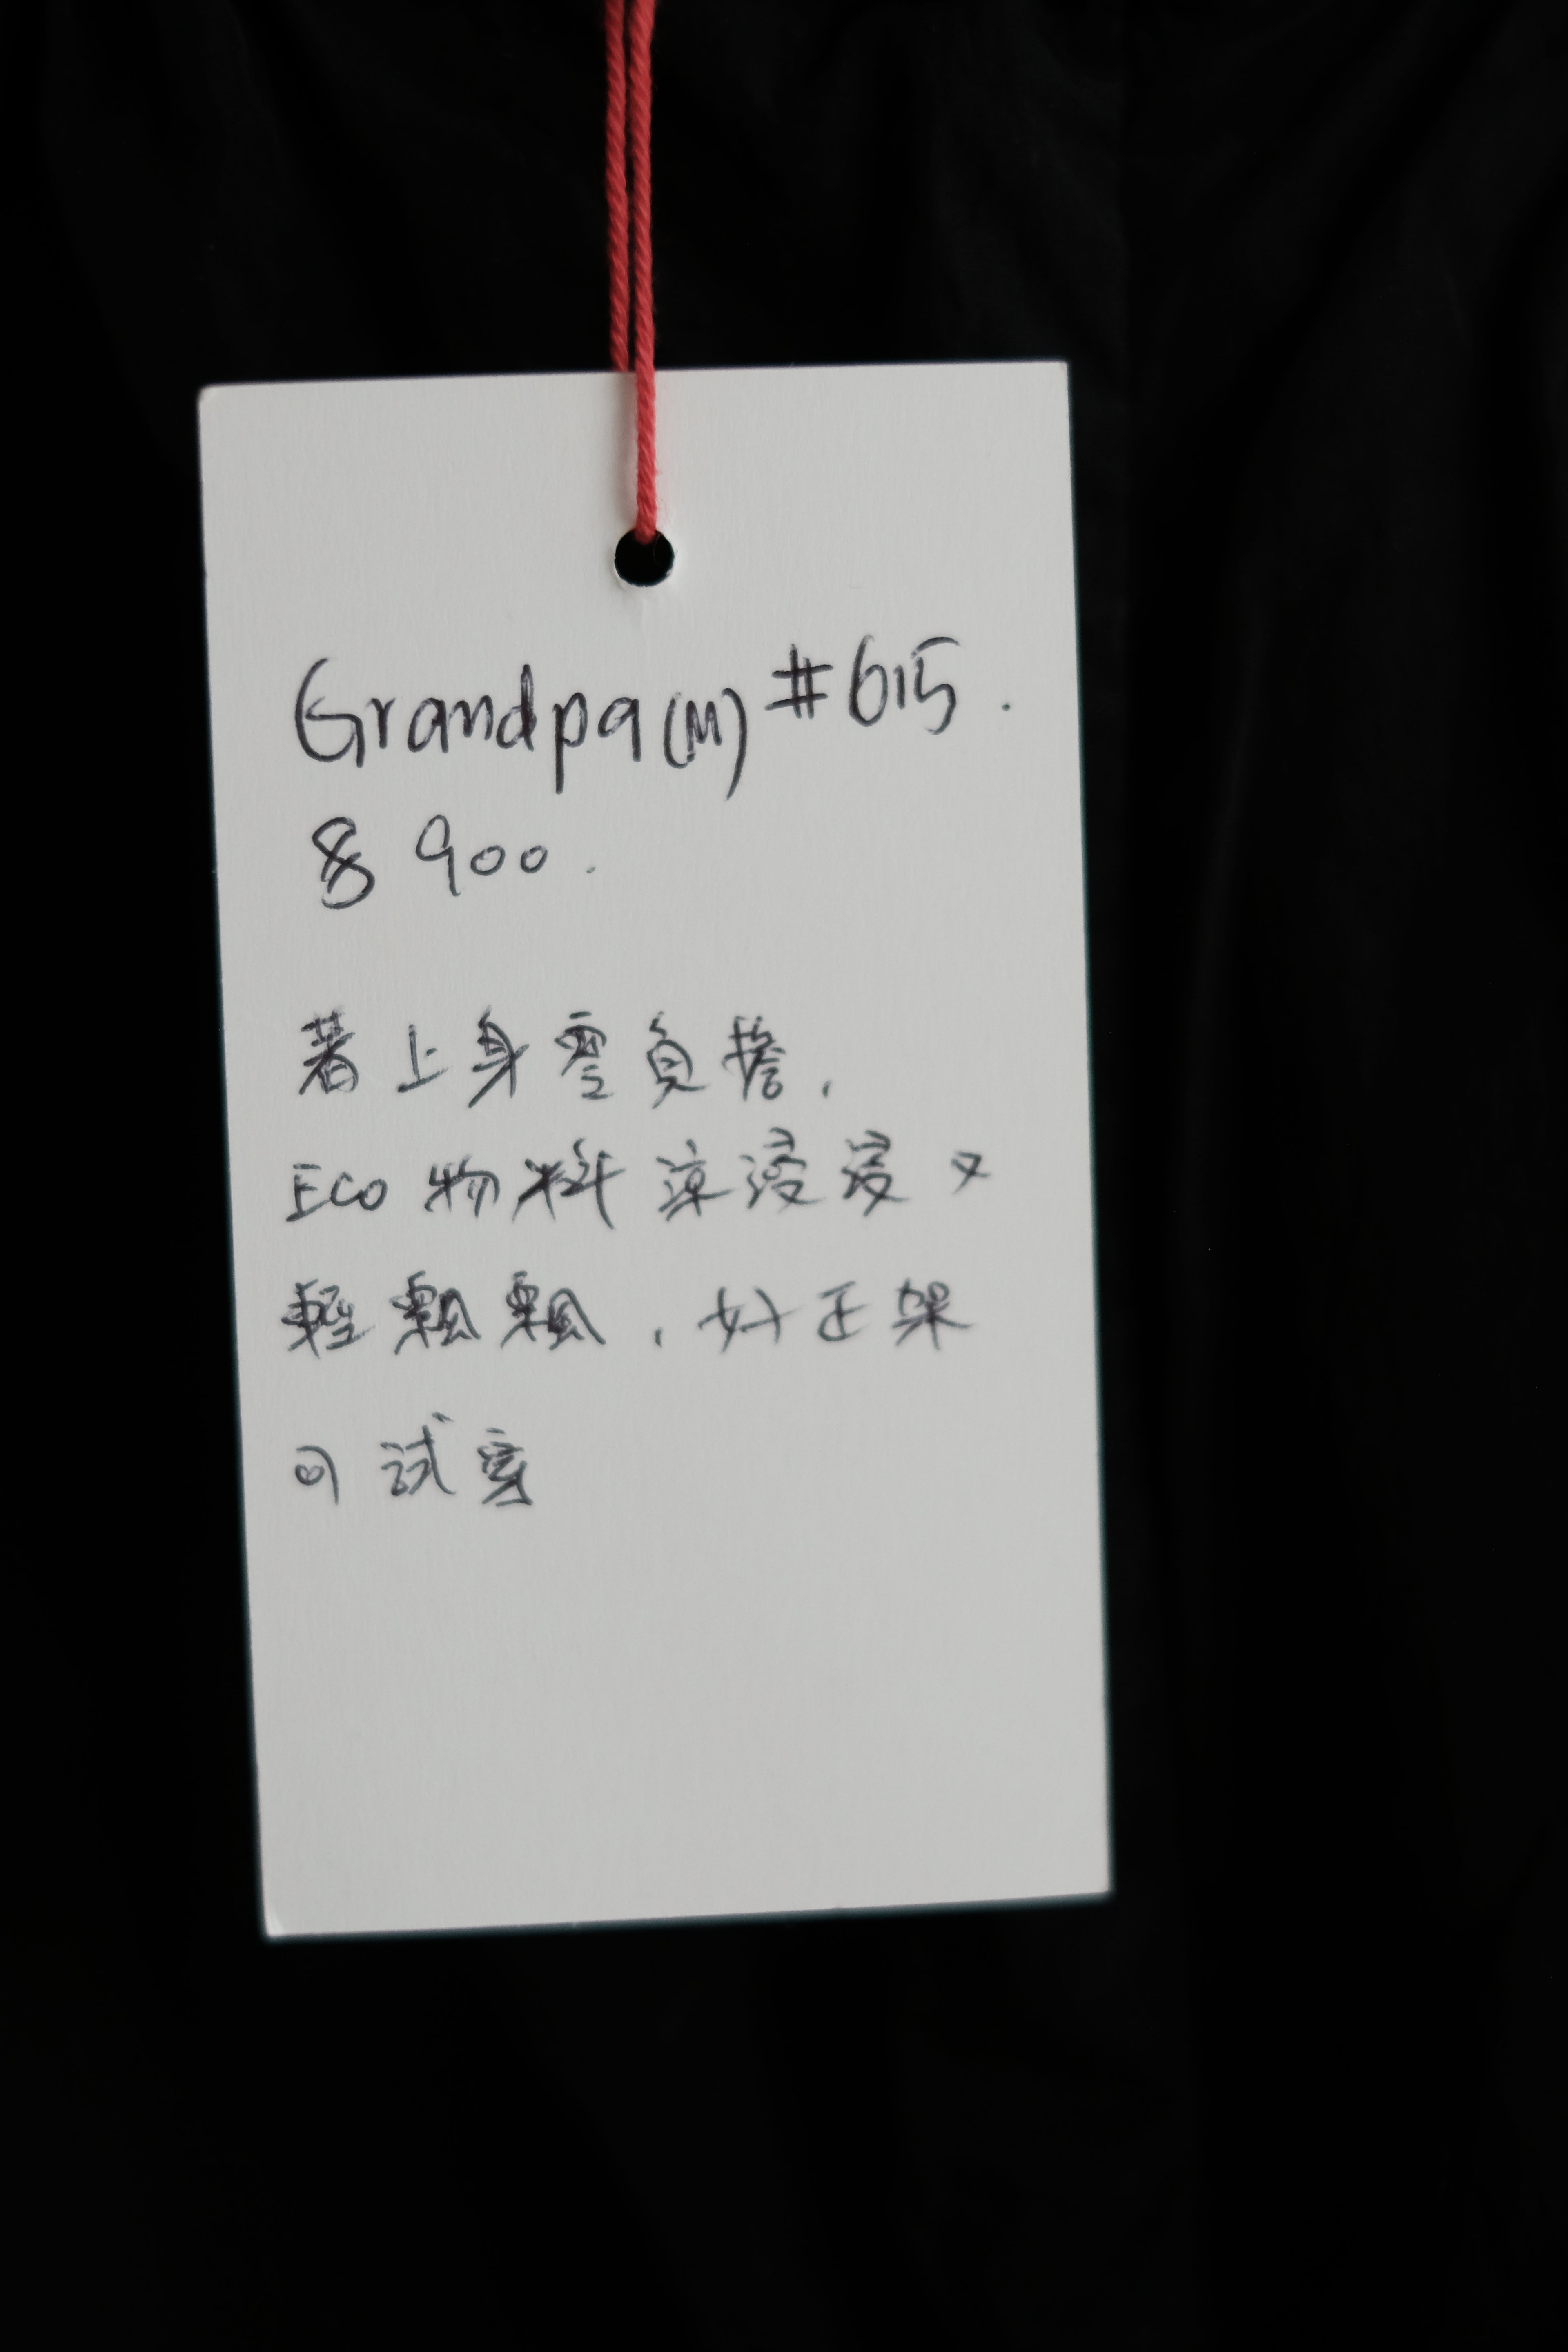 Grandpa(M) #615.
$ 900.
著上身零負擔,
ECO 物料涼浸浸又
輕飄飄,好正架
可試穿